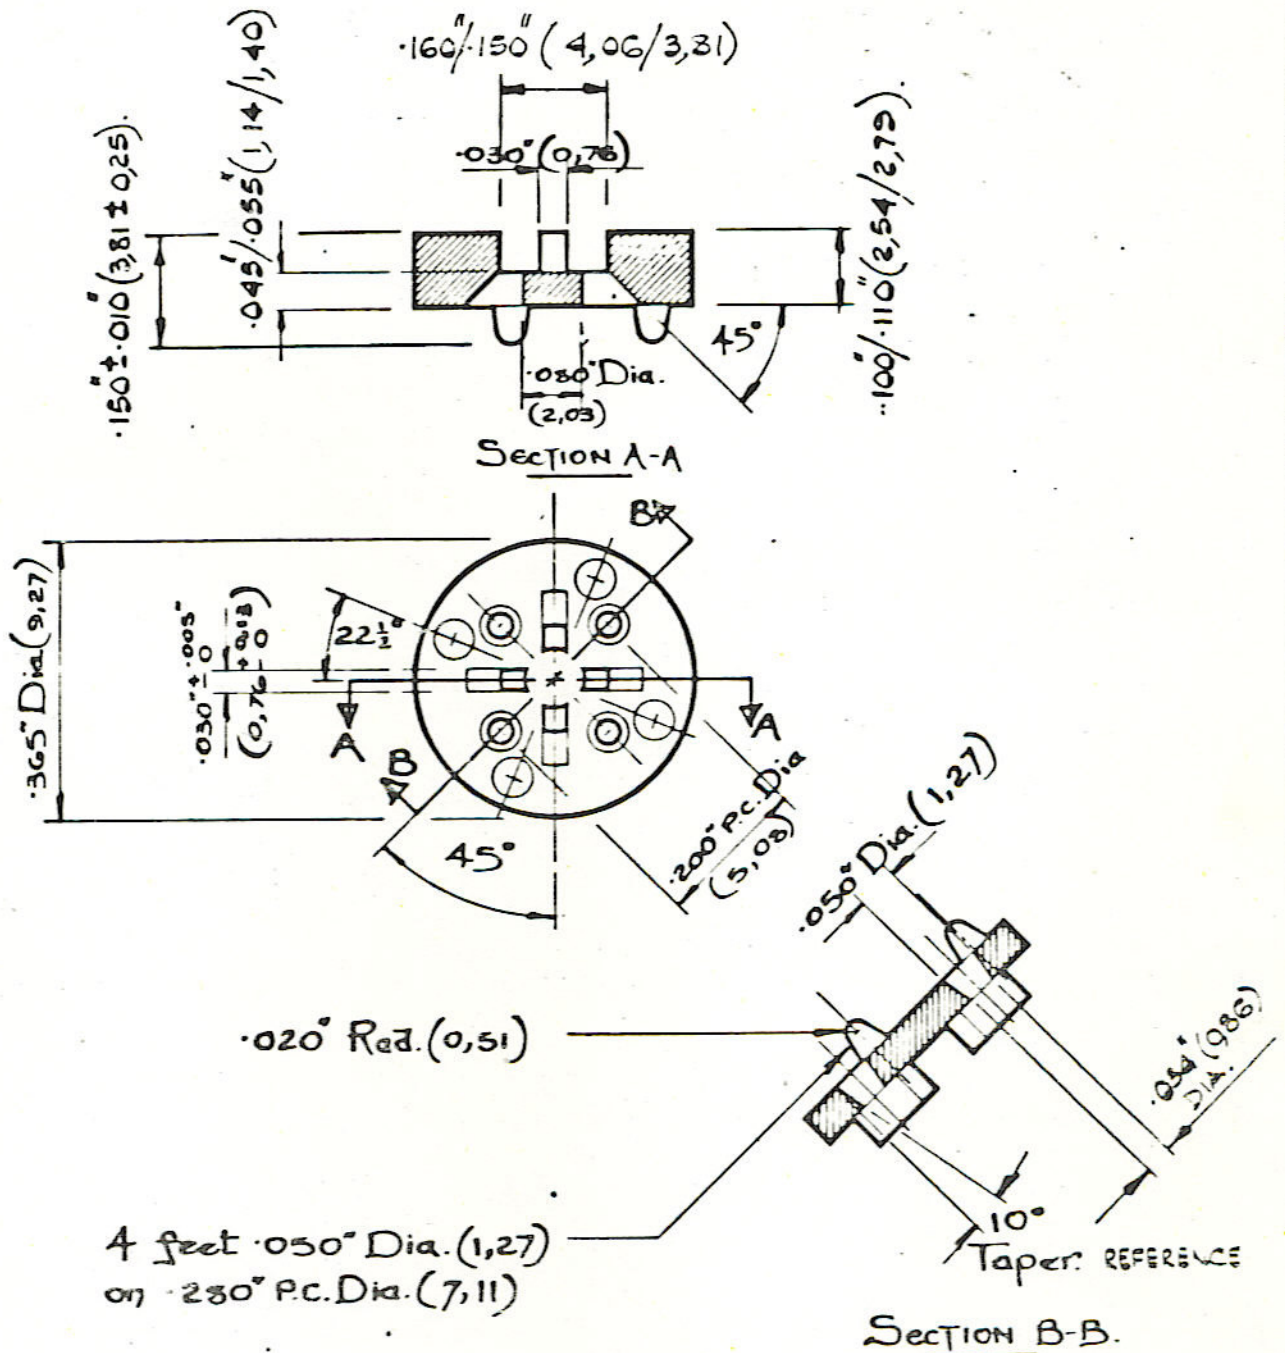 .160"/.150" (4,06/3,81)
.030" (0,76)
.150"±.010" (3,81 ± 0,25).
.045"/.055" (1,14/1,40)
.100"/.110" (2,54/2,79).
45°
.080" Dia.
(2,03)
SECTION A-A
B
.365" Dia (9,27)
.030" + .005" - 0
(0,76 + 0,13 - 0)
22½°
A
A
B
45°
.200" P.C. Dia
(5,08)
.050" Dia. (1,27)
.020" Rad. (0,51)
.034" (0,86)
DIA.
10°
Taper. REFERENCE
4 feet .050" Dia. (1,27)
on .280" P.C. Dia. (7,11)
SECTION B-B.